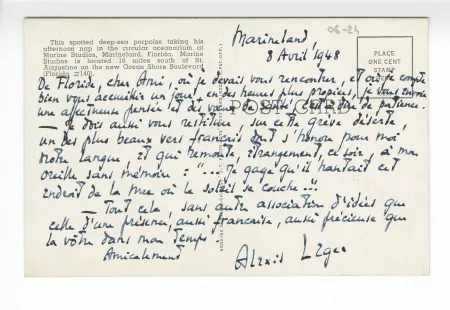 This spotted deep-sea porpoise taking his
afternoon nap in the circular oceanarium at
Marine Studios, Marineland, Florida. Marine
Studios is located 18 miles south of St.
Augustine on the new Ocean Shore Boulevard
(Florida #140).
06-24
Marineland,
8 Avril, 1948
PLACE
ONE CENT
STAMP
POST CARD
De Floride, cher Ami, où je devais vous rencontrer, et où je compte
bien vous accueillir un jour, en des heures plus propices, je vous envoie
une affectueuse pensée et des vœux de santé, c'est-à-dire de patience.
— Je dois aussi vous restituer, sur cette grève déserte,
un des plus beaux vers français dont s'honore pour moi
notre langue, et qui remonte, étrangement, ce soir, à mon
oreille sans mémoire : "... Je gage qu'il hantait cet
endroit de la mer où le soleil se couche"...
— Tout cela, sans autre association d'idées que
celle d'une présence, aussi française, aussi précieuse que
la vôtre dans mon Temps
Amicalement
Alexis Léger